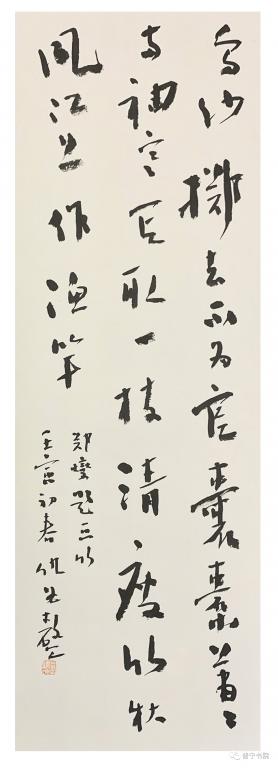 烏紗擲去不为官囊橐萧〻
两袖寒写取一枝清瘦竹秋
風江上作渔竿
郑燮题竹
壬寅初春
普宁书院